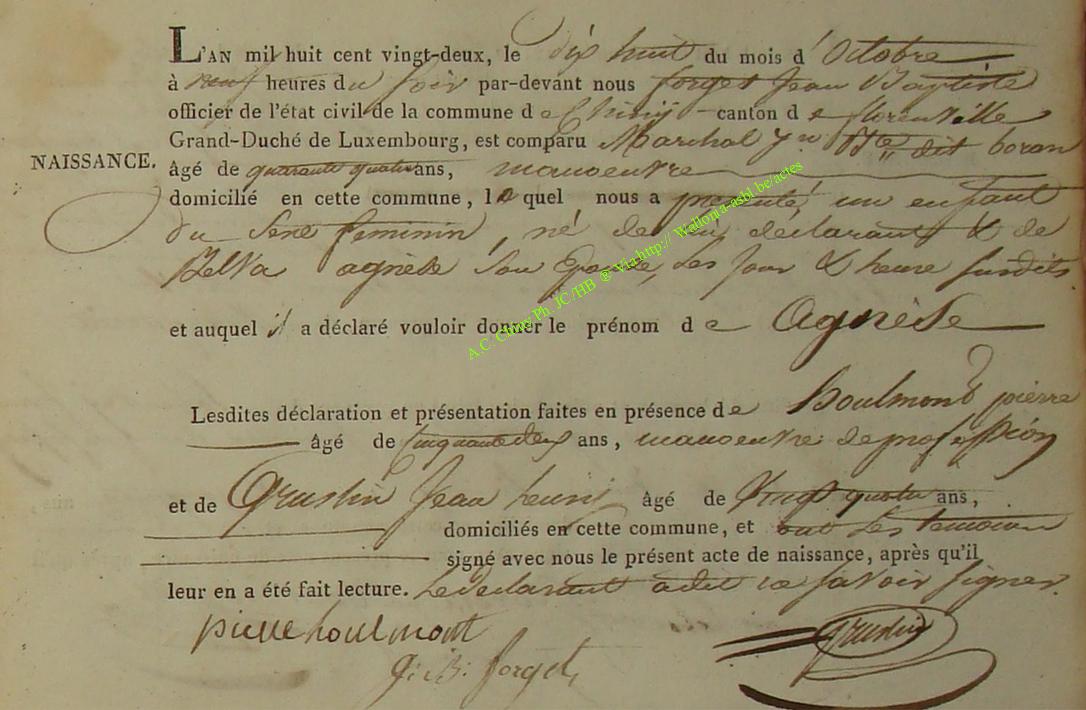 L'AN mil huit cent vingt-deux, le dix huit du mois d'Octobre
à neuf heures du soir par-devant nous forget Jean Baptiste
officier de l'état civil de la commune de Chiny canton de florenville
Grand-Duché de Luxembourg, est comparu Marchal Jn Bte dit boran
NAISSANCE.
âgé de quarante quatre ans, manoeuvre
domicilié en cette commune, lequel nous a présenté un enfant
du sexe feminin, né de lui declarant & de
Belva agnèse son Epouse, les jour & heure susdits.
et auquel il a déclaré vouloir donner le prénom de Agnèse
A.C. Chiny Ph. JC/HB @ Via http:// Wallonia-asbl.be/actes
Lesdites déclaration et présentation faites en présence de houlmont pierre
âgé de cinquante deux ans, manoeuvre de profession
et de Grustin Jean henri âgé de vingt quatre ans,
domiciliés en cette commune, et ont les temoins
signé avec nous le présent acte de naissance, après qu'il
leur en a été fait lecture. Le declarant a dit ne savoir signer.
pierre houlmont
grustin
J: B: forget,